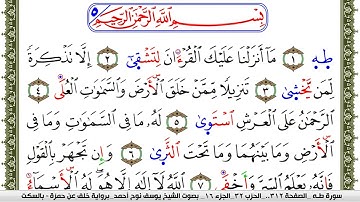 بِسْمِ ٱللَّهِ ٱلرَّحْمَٰنِ ٱلرَّحِيمِ
طه ١ مَآ أَنزَلْنَا عَلَيْكَ ٱلْقُرْءَانَ لِتَشْقَىٰٓ ٢ إِلَّا تَذْكِرَةً
لِّمَن يَخْشَىٰ ٣ تَنزِيلًا مِّمَّنْ خَلَقَ ٱلْأَرْضَ وَٱلسَّمَٰوَٰتِ ٱلْعُلَى ٤
ٱلرَّحْمَٰنُ عَلَى ٱلْعَرْشِ ٱسْتَوَىٰ ٥ لَهُۥ مَا فِى ٱلسَّمَٰوَٰتِ وَمَا فِى
ٱلْأَرْضِ وَمَا بَيْنَهُمَا وَمَا تَحْتَ ٱلثَّرَىٰ ٦ وَإِن تَجْهَرْ بِٱلْقَوْلِ
فَإِنَّهُۥ يَعْلَمُ ٱلسِّرَّ وَأَخْفَى ٧ ٱللَّهُ لَآ إِلَٰهَ إِلَّا هُوَ لَهُ
سورة طه _ الصفحة ٣١٢ _ الحزب ٣٢ _ الجزء ١٦ _ بصوت الشيخ يوسف نوح أحمد _ برواية خلف عن حمزة - بالسكت